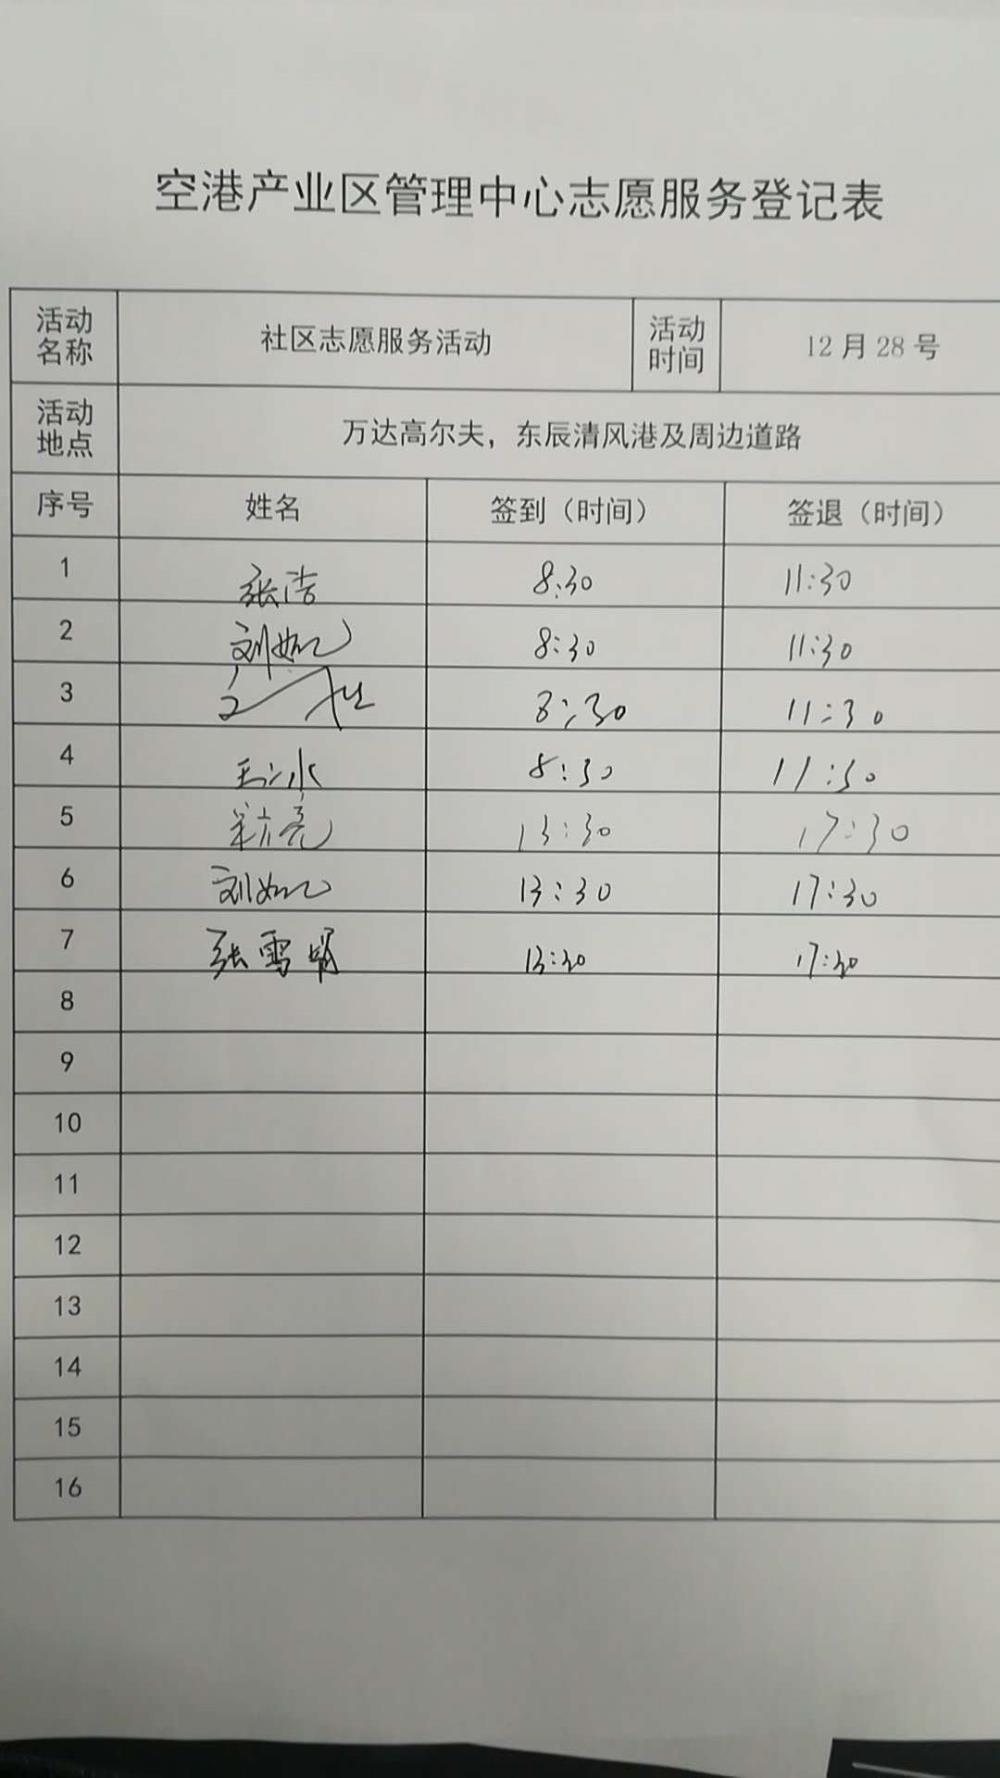 空港产业区管理中心志愿服务登记表
活动名称 社区志愿服务活动 活动时间 12月28号
活动地点 万达高尔夫，东辰清风港及周边道路
序号 姓名 签到（时间） 签退（时间）
1 张浩 8:30 11:30
2 刘如 8:30 11:30
3 8:30 11:30
4 8:30 11:30
5 亮 13:30 17:30
6 刘如 13:30 17:30
7 张雪娟 13:30 17:30
8
9
10
11
12
13
14
15
16